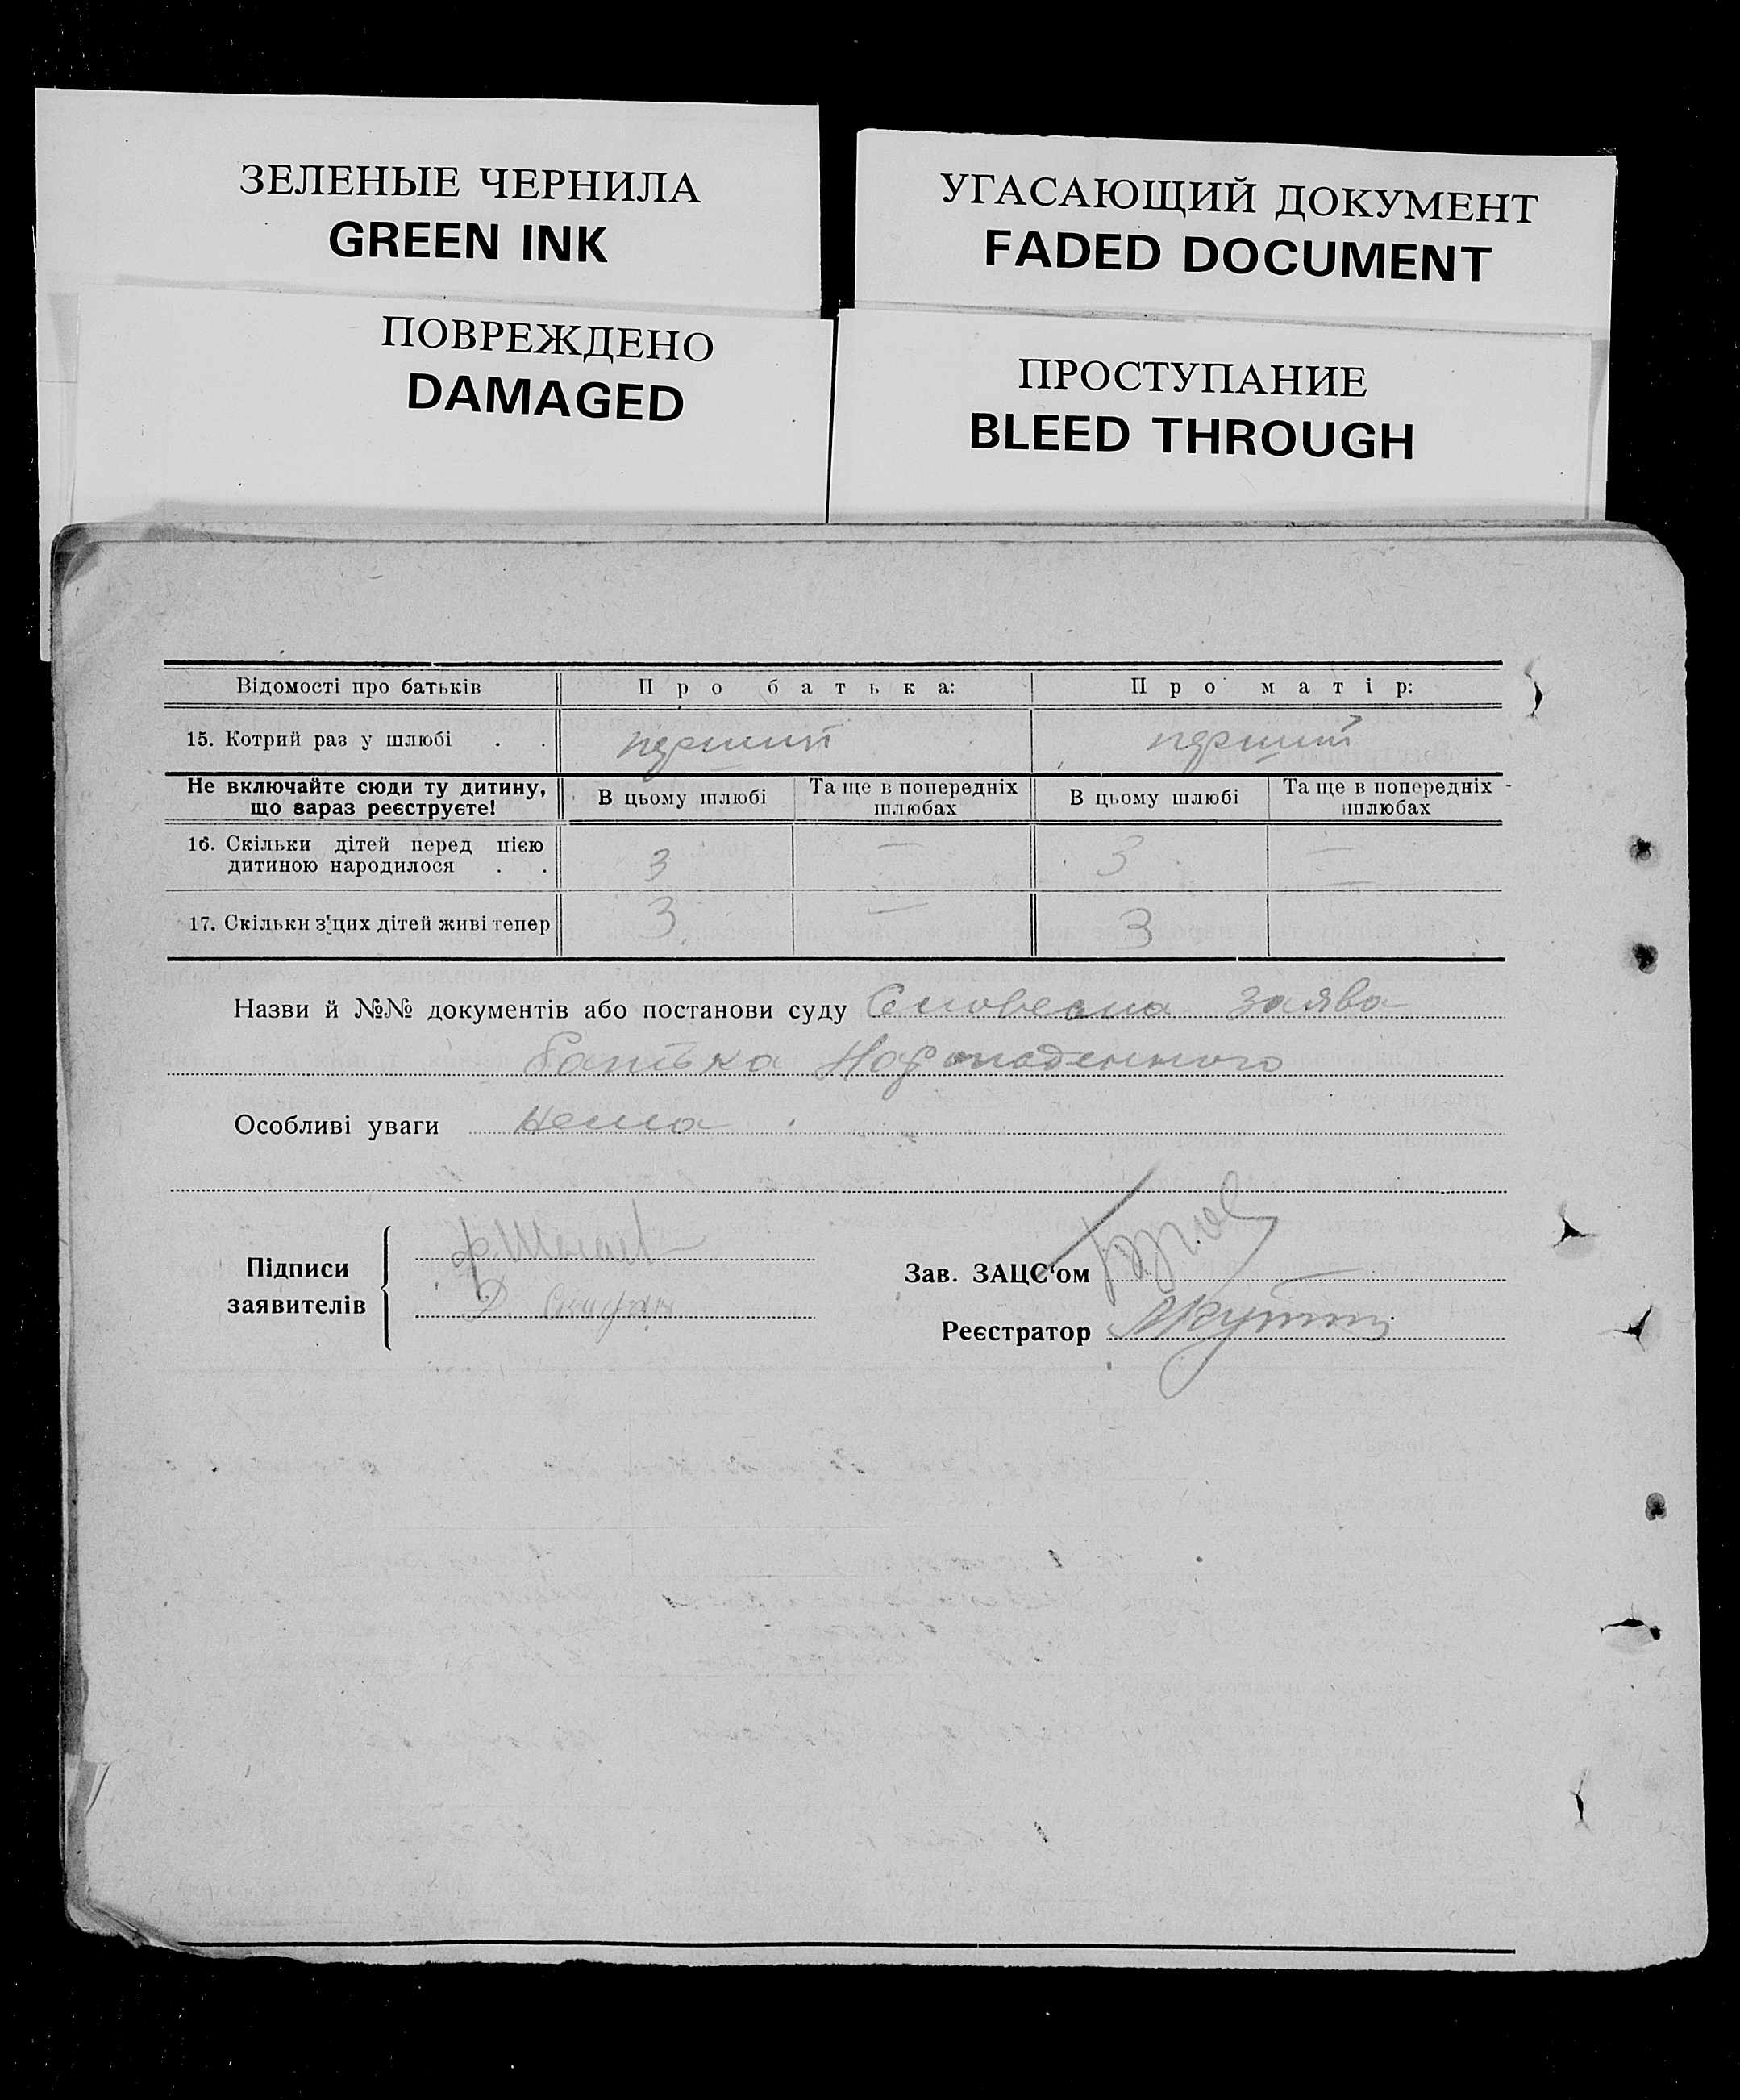 ЗЕЛЕНЫЕ ЧЕРНИЛА
GREEN INK
УГАСАЮЩИЙ ДОКУМЕНТ
FADED DOCUMENT
ПОВРЕЖДЕНО
DAMAGED
ПРОСТУПАНИЕ
BLEED THROUGH
Відомості про батьків Про батька: Про матір:
15. Котрий раз у шлюбі . . перший перший
Не включайте сюди ту дитину, що зараз реєструєте! В цьому шлюбі Та ще в попередніх шлюбах В цьому шлюбі Та ще в попередніх шлюбах
16. Скільки дітей перед цією дитиною народилося . . 3 — 3 —
17. Скільки з цих дітей живі тепер 3 — 3 —
Назви й №№ документів або постанови суду Словесна заява
батька
Особливі уваги нема
Підписи заявителів
Зав. ЗАЦС'ом
Реєстратор